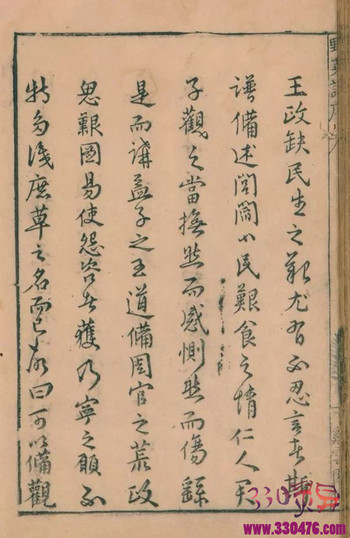 王政缺民生之艱尤有不忍言者斯
譜備述閭閻小民艱食之情仁人君
子觀之當撫然而感惻然而傷繇
是而講孟子之王道備周官之荒政
思艱圖易使怨咨者獲乃寧之願不
特多識庶草之名而已故曰可以備觀
330476
www.330476.com